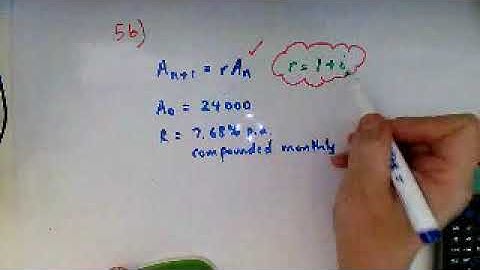 5b)
Aₙ₊₁ = rAₙ ✓
r = 1 + i
A₀ = 24000
R = 7.68% p.a.
compounded monthly